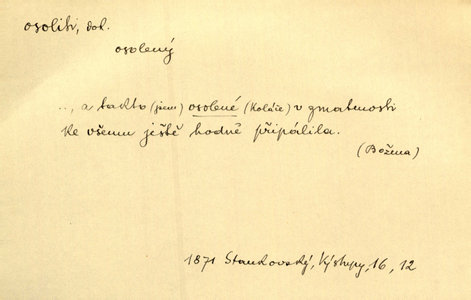 osoliti, dok.
osolený
.., a takto (jsem) osolené (koláče) v zmatenosti
ke všemu ještě hodně připálila.
(Božena)
1871 Stankovský, Výstupy, 16, 12